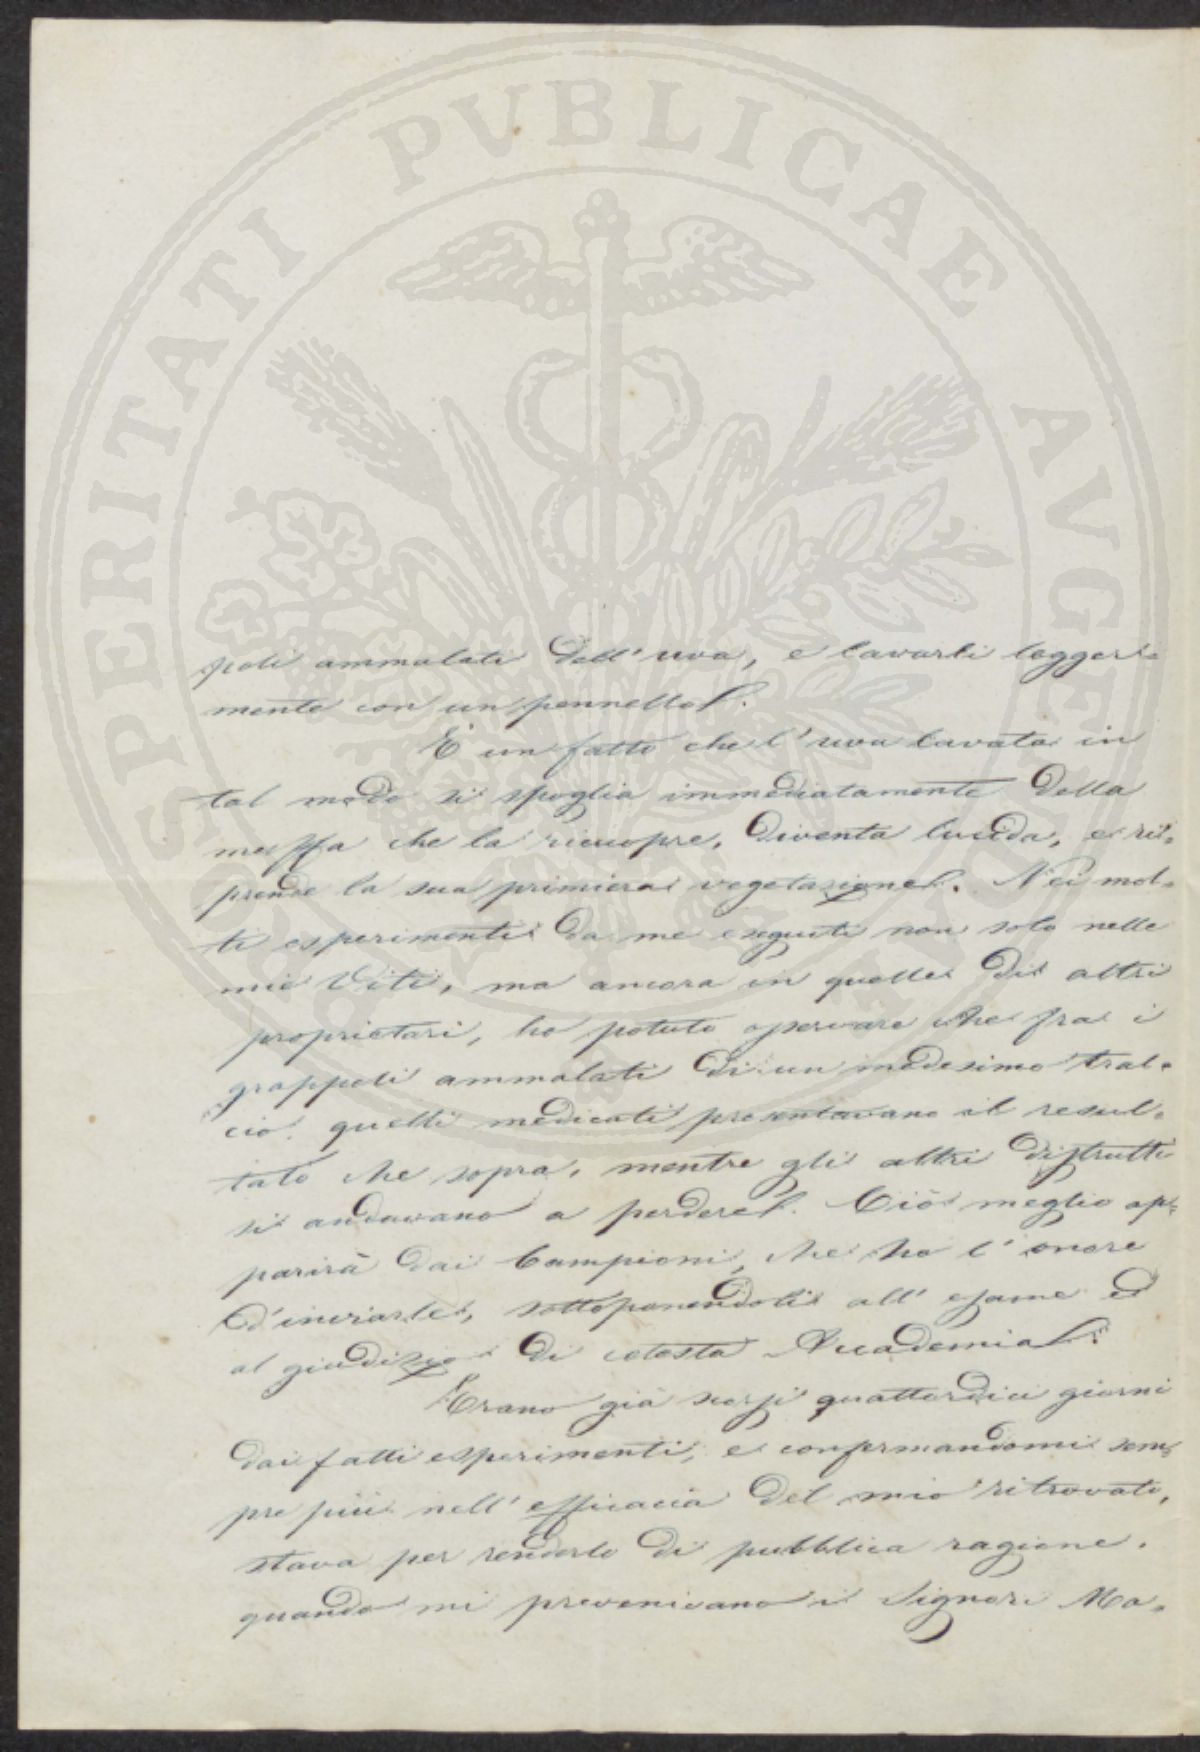 PROSPERITATI PUBLICAE AUGENDAE
poli ammalati dell'uva, e lavarli legger=
mente con un pennello.
È un fatto che l'uva lavata in
tal modo si spoglia immediatamente della
muffa che la ricuopre, diventa lucida, e ri=
prende la sua primiera vegetazione. Nei mol=
ti esperimenti da me eseguiti non solo nelle
mie Viti, ma ancora in quelle di altri
proprietari, ho potuto osservare che fra i
grappoli ammalati di un medesimo tral=
cio quelli medicati presentavano il resul=
tato che sopra, mentre gli altri distrutti
si andavano a perdere. Ciò meglio ap=
parirà dai Campioni, che ho l'onore
d'inviarle, sottoponendoli all'esame ed
al giudizio di cotesta Accademia.
Erano già scorsi quattordici giorni
dai fatti esperimenti, e confermandomi sem=
pre più nell'efficacia del mio ritrovato,
stava per renderlo di pubblica ragione,
quando mi prevenivano i Signori Ma=